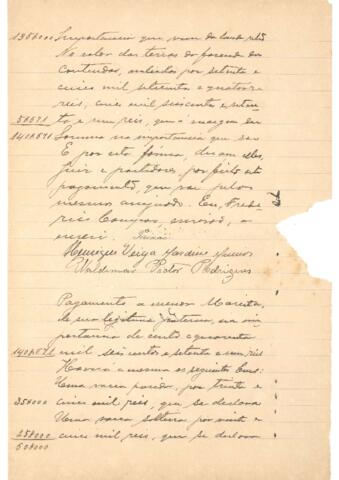 135$000 Importancia que vem do lado retro
No valor das terras da fazenda dos
Contendas, avaliadas por setenta e
cinco mil setecentos e quatorze
reis, cinco mil seis centos e seten-
5$671 ta e um reis, que á margem sae
140$671 Somma na importancia que sae
E por esta fórma, deram elles,
juiz e partidores por feito este
pagamento, que vai pelos
mesmos assignado. Eu,
Campos, escrivão, o
escrevi.
Henrique Veiga Jardim Junior
Waldemar Pactor Rodrigues
Pagamento a menor Marieta,
de sua legitima paterna, na im-
portancia de cento e quarenta
140$671 mil, seis centos e setenta e um reis
Haverá a mesma os seguintes bens:
Uma vacca parida, por trinta e
35$000 cinco mil réis, que se declara
Uma vacca solteira por vinte e
25$000 cinco mil reis, que se declara
60$000